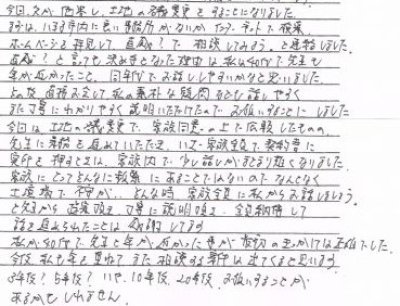 今回、父が他界し、土地の名義変更をすることになりました。
まずは、いろは市内に良い事務所がないかインターネットで検索、
ホームページを拝見して直感で相談してみようと連絡しました。
直感と言っても決め手となった理由は私は40代で先生も
年が近かったこと、同年代でお話ししやすいかなと思いました。
その後直接お会して私の素朴な疑問などを話しやすく
また丁寧にわかりやすく説明いただけたのでお願いすることにしました。
今回は土地の名義変更で、家族同意の上で依頼したものの、
先生に業務を進めていただき、いざ家族全員で契約書に
実印を押すときは、家族内で少し話しがまとまり難くなりました。
家族にとってそんなに頻繁にあることではないのでなんとなく
土壇場で不安が。そんな時家族全員に私からお話しましょう
と先生から直接丁寧に説明頂き、全員納得して
話を進められたことは感謝してます
私が40代で先生と年が近かった事が最初のきっかけは正解でした。
今後、私も年を重ねてまた相談する事件は出てくると思います
3年後?5年後?いや、10年後、20年後、お願いすることが
あるかもしれません。